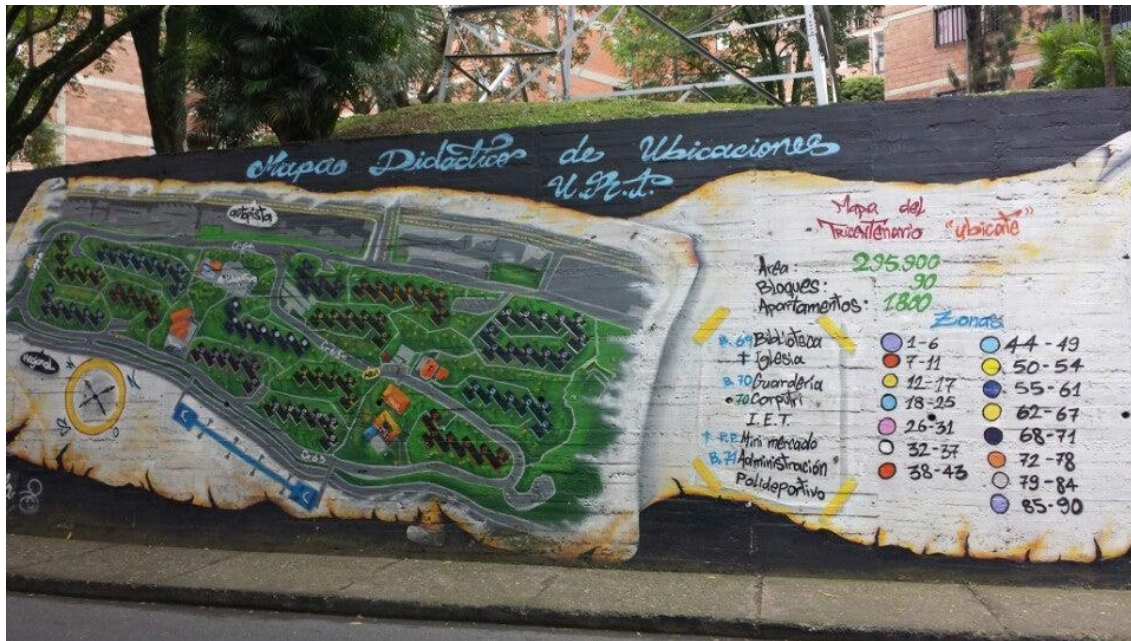 Mapa Didáctico de Ubicaciones
U.R.T.
autopista
Regional
Cr65
Mapa del
Tricentenario
"ubicate"
Area: 295.900
Bloques: 90
Apartamentos: 1800
Zonas
B. 69 Biblioteca
Iglesia
B. 70 Guardería
70 Corputri
I.E.T.
P.P. Mini mercado
B. 71 Administración
Polideportivo
1-6
7-11
12-17
18-25
26-31
32-37
38-43
44-49
50-54
55-61
62-67
68-71
72-78
79-84
85-90